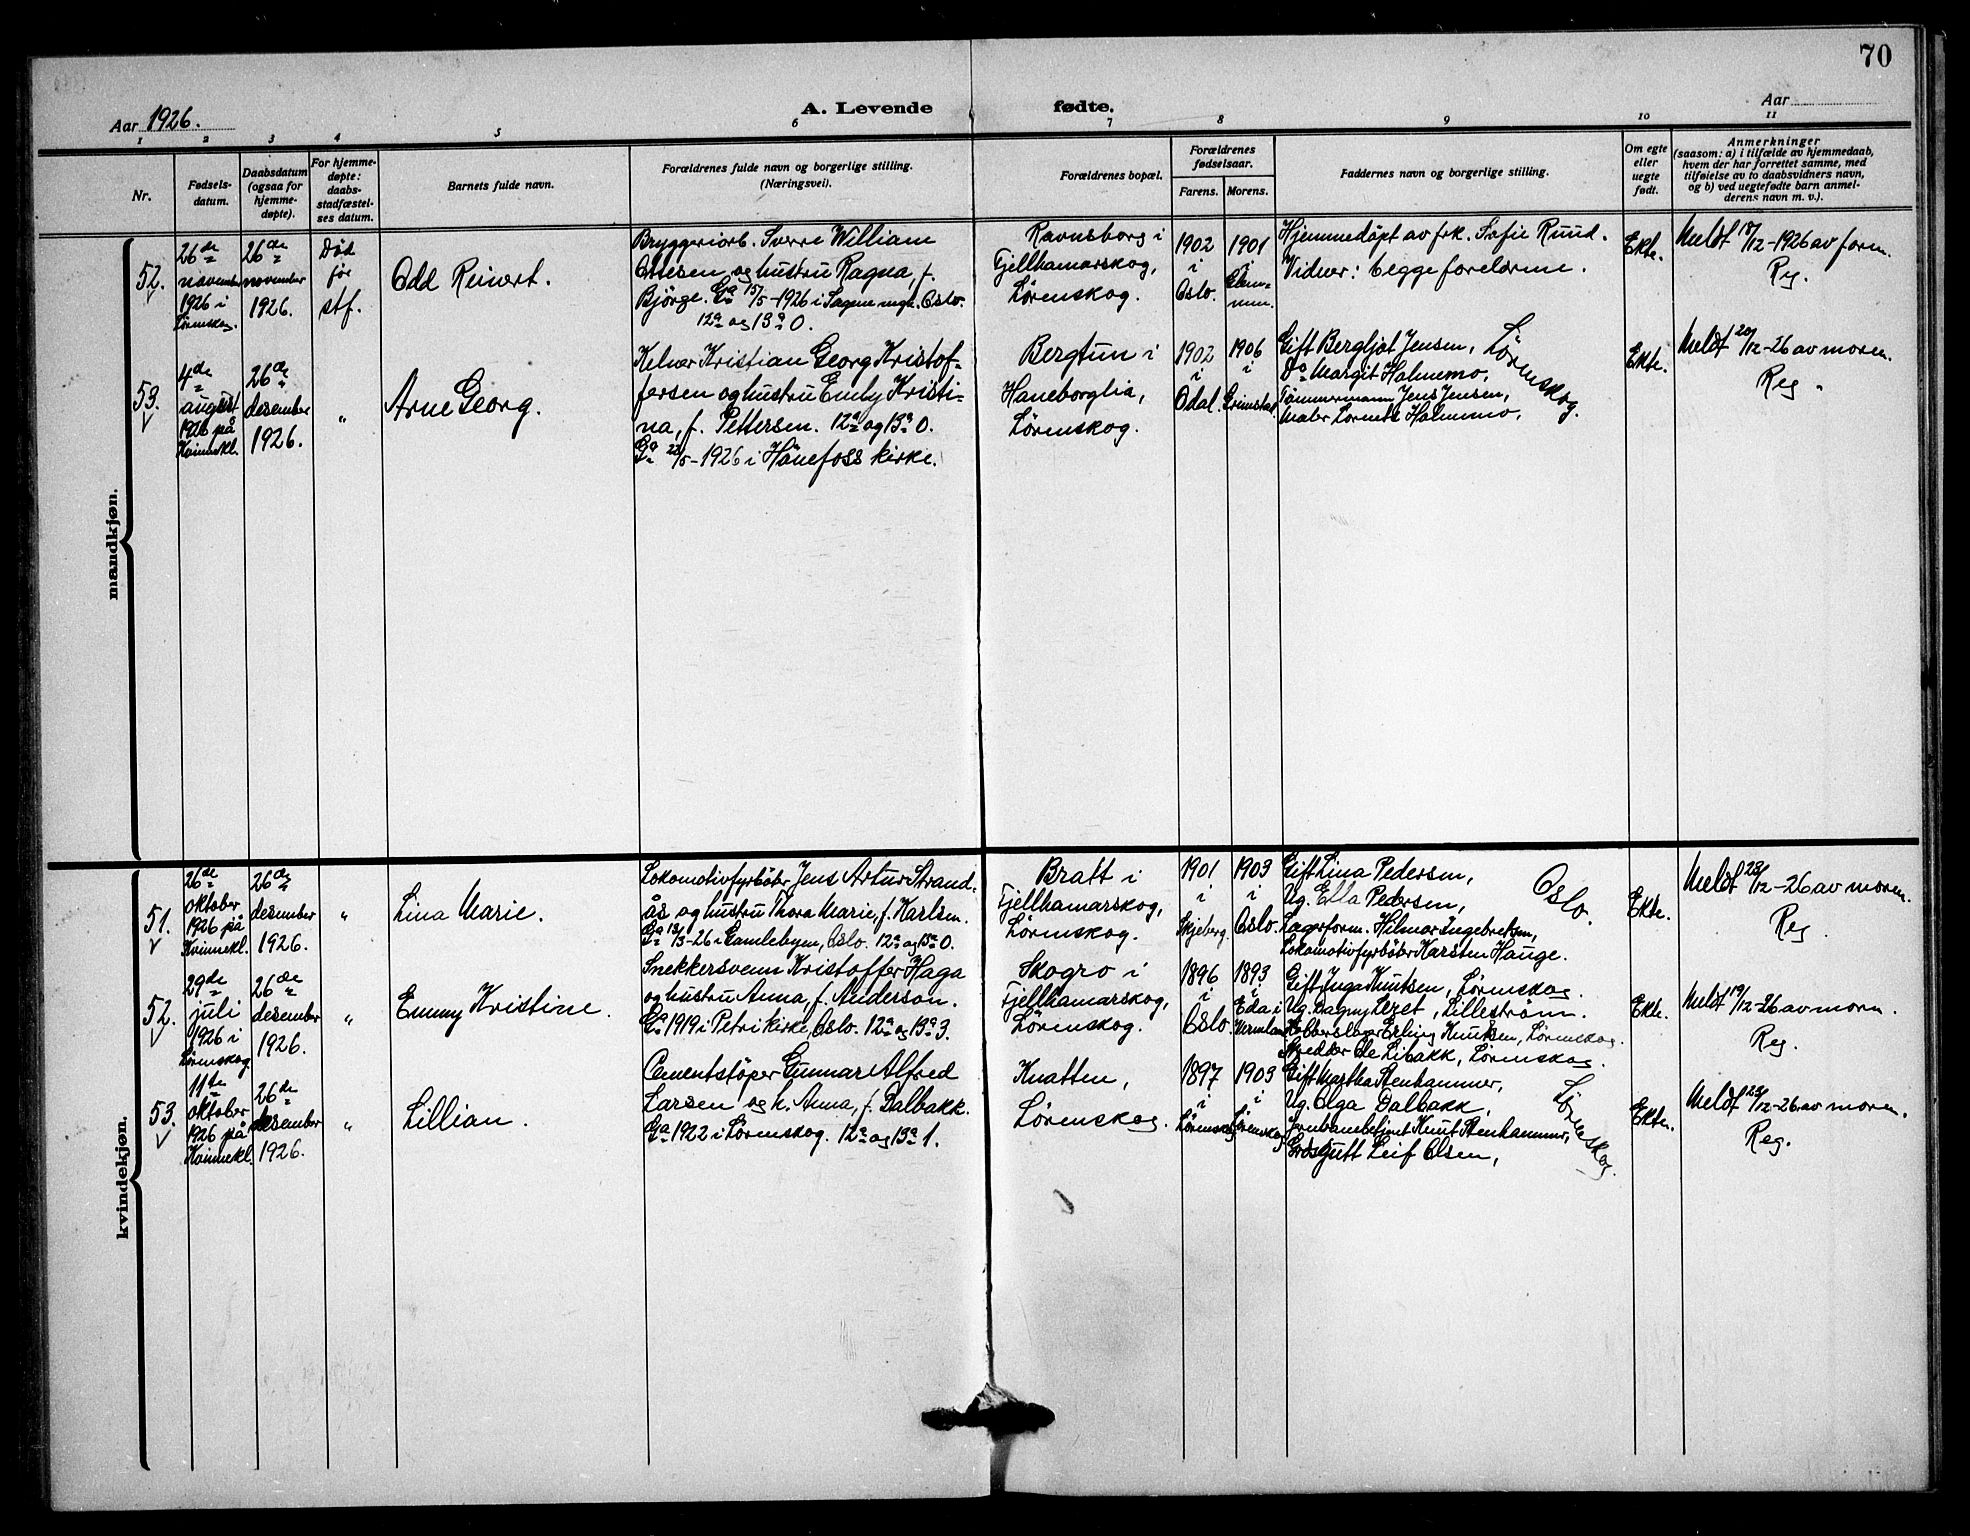 70
Aar 1926.
A. Levende fødte.
Aar
1 2 3 4 5 6 7 8 9 10 11
Nr.
Fødsels-
datum.
Daabsdatum
(ogsaa for
hjemme-
døpte).
For hjemme-
døpte:
daabs-
stadfæstel-
ses datum.
Barnets fulde navn.
Forældrenes fulde navn og borgerlige stilling.
(Næringsvei).
Forældrenes bopæl.
Forældrenes
fødselsaar.
Farens. Morens.
Faddernes navn og borgerlige stilling.
Om egte
eller
uegte
født.
Anmerkninger
(saasom: a) i tilfælde av hjemmedaab,
hvem der har forrettet samme, med
tilføielse av to daabsvidners navn,
og b) ved uegtefødte barn anmel-
derens navn m. v.).
mandkjøn.
52.
26de
november
1926 i
Lørenskog.
26de
november
1926.
Død
før
stf.
Odd Reivert.
Bryggeriarb. Sverre William
Ottesen og hustru Ragna, f.
Bjørge. Ga 15/5-1926 i Sagene mgh. Oslo.
12a og 13a 0.
Ravnsborg i
Fjellhamarskog,
Lørenskog.
1902
i
Oslo.
1901
i
Hjemmedøpt av frk. Sofie Ruud.
Vidner: begge forældrene.
Ekte.
Meldt 17/12-1926 av faren.
Rg.
53.
4de
august
1926 på
Kvinnekl.
26de
desember
1926.
"
Arne Georg.
Kelner Kristian Georg Kristof-
fersen og hustru Emly Kristi-
na, f. Pettersen. 12a og 13a 0.
Ga 22/5-1926 i Hønefoss kirke.
Bergtun i
Haneborglia,
Lørenskog.
1902
i
Odal.
1906
i
Grimstad.
Gift Bergljot Jensen,
Do Margit Holmemo,
Tømmermann Jens Jensen,
Maler Lorents Holmemo,
Lørenskog.
Ekte.
Meldt 20/12-26 av moren.
Reg.
kvindekjøn.
51.
26de
oktober
1926 på
Kvinnekl.
26de
desember
1926.
"
Lina Marie.
Lokomotivfyrbøter Jens Artur Strand-
ås og hustru Thora Marie, f. Karlsen.
Ga 13/3-26 i Gamlebyen, Oslo. 12a og 13a 0.
Bratt i
Fjellhamarskog,
Lørenskog.
1901
i
Skjeberg.
1903
i
Oslo.
Gift Lina Pedersen,
Ug. Ella Pedersen,
Lagerform. Hilmar Ingebretsen,
Lokomotivfyrbøter Karsten Hauge.
Oslo.
Ekte.
Meldt 23/12-26 av moren.
Reg.
52.
29de
juli
1926 i
Lørenskog
26de
desember
1926.
"
Emmy Kristine.
Snekkersvenn Kristoffer Haga
og hustru Anna, f. Anderson.
Ga 1919 i Petri kirke, Oslo. 12a og 13a 3.
Skogro i
Fjellhamarskog,
Lørenskog.
1896
i
Oslo.
1893
i
Eda i
Vermland
Gift Inga Knutsen, Lørenskog.
Ug. Dagny Lexet, Lillestrøm.
Kobberslager Erling Knutsen, Lørenskog.
Skredder Ole Libakk, Lørenskog.
Ekte.
Meldt 19/12-26 av moren.
Reg.
53.
11te
oktober
1926 på
Kvinnekl.
26de
desember
1926.
"
Lillian.
Cementstøper Gunnar Alfred
Larsen og h. Anna, f. Dalbakk.
Ga 1922 i Lørenskog. 12a og 13a 1.
Knatten,
Lørenskog.
1897
i
Lørenskog
1903
i
Lørenskog
Gift Martha Stenhammer,
Ug. Olga Dalbakk,
Jernbanebetjent Knut Stenhammer,
Leif Olsen,
Lørenskog.
Ekte.
Meldt 23/12-26 av moren.
Reg.